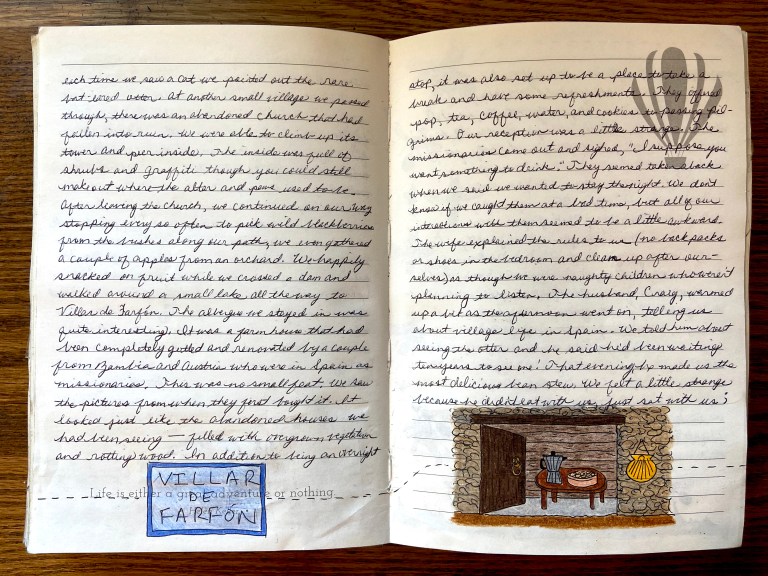 each time we saw a cat we pointed out the rare
but-eared otter. At another small village we passed
through, there was an abandoned church that had
fallen into ruin. We were able to climb up its
tower and peer inside. The inside was full of
shrubs and graffiti though you could still
make out where the alter and pews used to be.
After leaving the church, we continued on our way
stopping every so often to pick wild blackberries
from the bushes along our path, we even gathered
a couple of apples from an orchard. We happily
snacked on fruit while we crossed a dam and
walked around a small lake all the way to
Villar de Farfón. The albergue we stayed in was
quite interesting. It was a farm house that had
been completely gutted and renovated by a couple
from Zambia and Austria who were in Spain as
missionaries. This was no small feat. We saw
the pictures from when they first bought it. It
looked just like the abandoned houses we
had been seeing — filled with overgrown vegetation
and rotting wood. In addition to being an overnight
Life is either a great adventure or nothing.
VILLAR
DE
FARFÓN
stop, it was also set up to be a place to take a
break and have some refreshments. They offered
pop, tea, coffee, water, and cookies to passing pil-
grims. Our reception was a little strange. The
missionaries came out and sighed, "I suppose you
want something to drink." They seemed taken aback
when we said we wanted to stay the night. We don't
know if we caught them at a bad time, but all of our
interactions with them seemed to be a little awkward.
The wife explained the rules to us (no backpacks
or shoes in the bedroom and clean up after our-
selves) as though we were naughty children who weren't
planning to listen. The husband, Craig, warmed
up a bit as the afternoon went on, telling us
about village life in Spain. We told him about
seeing the otter and he said he'd been waiting
ten years to see one! That evening he made us the
most delicious bean stew. We felt a little strange
because he didn't eat with us, just sat with us!